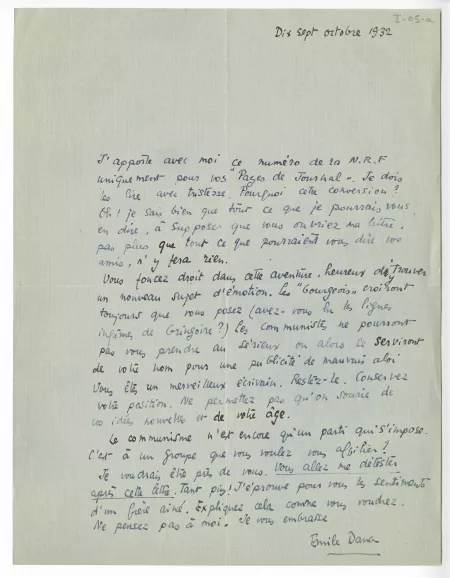 I-05-a
Dix sept octobre 1932
J'apporte avec moi ce numéro de la N.R.F
uniquement pour vos "Pages de Journal". Je dois
les lire avec tristesse. Pourquoi cette conversion?
Oh! je sais bien que tout ce que je pourrais vous
en dire, à supposer que vous ouvriez ma lettre,
pas plus que tout ce que pourraient vous dire vos
amis, n'y fera rien.
Vous foncez droit dans cette aventure, heureux de trouver
un nouveau sujet d'émotion. Les "bourgeois" croiront
toujours que vous posez (avez-vous lu les lignes
infâmes de Gringoire?) Les communistes ne pourront
pas vous prendre au sérieux ou alors se serviront
de votre nom pour une publicité de mauvais aloi
Vous êtes un merveilleux écrivain. Restez-le. Conservez
votre position. Ne permettez pas qu'on sourie de
vos idées nouvelles et de votre âge.
Le communisme n'est encore qu'un parti qui s'impose.
C'est à un groupe que vous voulez vous affilier?
Je voudrais être près de vous. Vous allez me détester
après cette lettre. Tant pis! J'éprouve pour vous les sentiments
d'un frère aîné. Expliquez cela comme vous voudrez.
Ne pensez pas à moi. Je vous embrasse
Emile Dana